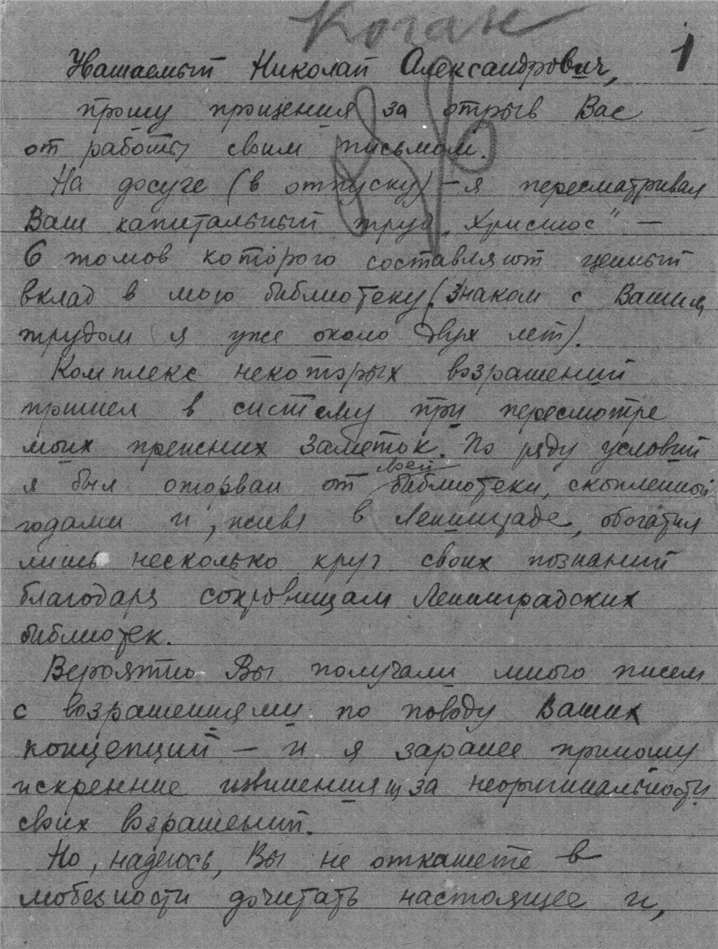 Коган
1
Уважаемый Николай Александрович,
прошу прощения за отрыв Вас
от работы своим письмом.
На досуге (в отпуску) – я пересматривал
Ваш капитальный труд „Христос" —
6 томов которого составляют ценный
вклад в мою библиотеку. (Знаком с Вашим
трудом я уже около двух лет).
Комплекс некоторых возражений
пришел в систему при пересмотре
моих прежних заметок. По ряду условий
я был оторван от моей библиотеки, скопленной
годами и, живя в Ленинграде, обогатил
лишь несколько круг своих познаний
благодаря сокровищам Ленинградских
библиотек.
Вероятно Вы получали много писем
с возражениями по поводу Ваших
концепций — и я заранее приношу
искренние извинения за неоригинальность
своих возражений.
Но, надеюсь, Вы не откажете в
любезности дочитать настоящее и,